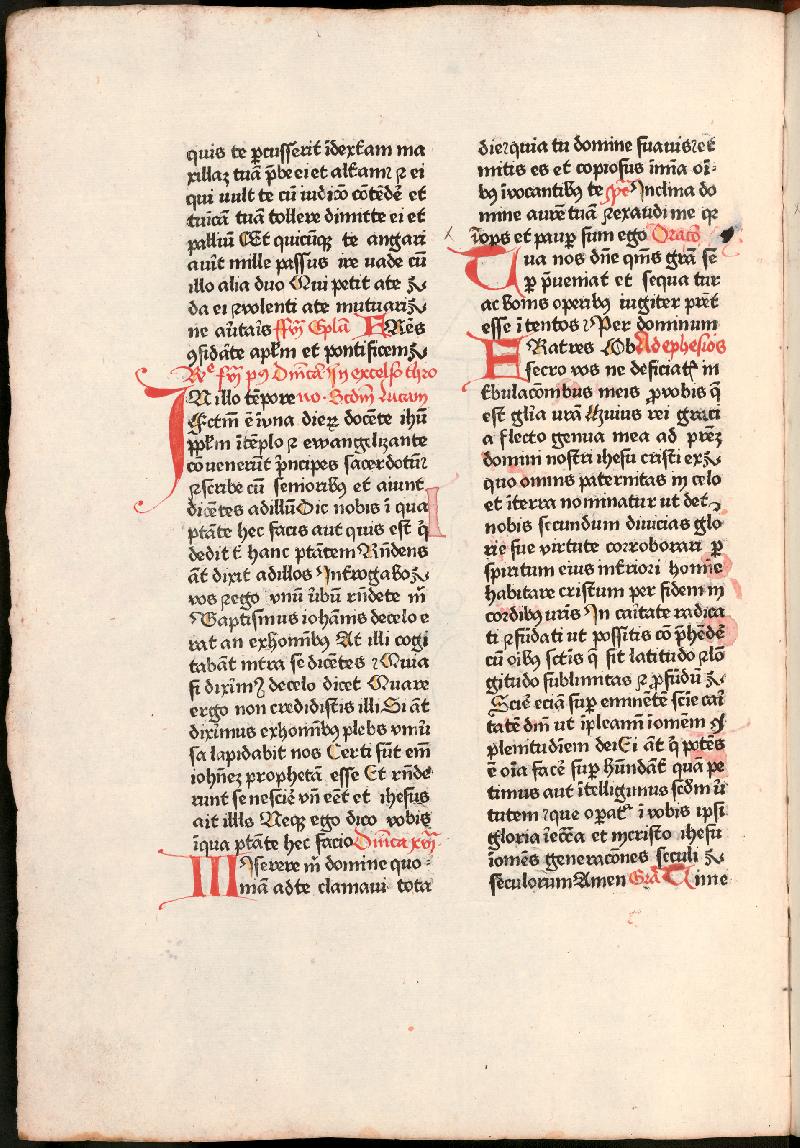 quis te ꝑcusserit īdext̄am ma
xillaꝫ tuā p̄be ei et alt̄amꝛ ꝛ ei
qui uult te cū iudico͞ cōtēdē et
tuīcā tuā tollere dimitte ei et
palliū Et quicūqꝫ te angari
auīt mille passus ire uade cū
illo alia duo Qui petit ate
da ei ꝛ volenti ate mutuari
ne au̅tais ffꝫ Ep̄la F Rēs
ꝯsidāte ap̄lm et pontificem
In excelso thro
I N illo tēpore no. Scdm̄ lucam
f̄ctm̄ ē ī vna dieꝝ docēte ihū
pp̄lm ītēplo ꝛ ewangelizante
cōuenerūt p̄ncipes sacerdotū
ꝛ scribe cū senioribꝫ et aiunt
dicētes adillū Dic nobis ī qua
ptāte hec facis aut quis est q̄
dedit t̄ hanc ptātem Rn̄dens
āt dixit adillos Int̄rogabo
vos ꝛ ego vnū ūbū rn̄dete m̄
Baptismus iohānis decelo e
rat an exhomībꝫ At illi cogi
tabāt intra se dicētes Quia
si dixim⁹ decelo dicet Quare
ergo non credidistis illi Si āt
diximus exhomībꝫ plebs vniū
sa lapidabit nos Certi sūt em̄
iohēꝫ prophetā esse Et rn̄de
runt se nesciē vn̄ eēt et ihesus
ait illis Neqꝫ ego dico vobis
īqua ptāte hec facio Dn̄ica xvj
M Iserere m̄ domine quo-
niā adte clamaui tota
die ꝛ quia tu domine suauis ꝛ et
mitis es et copiosus īmīa oī-
bꝫ īvocantibꝫ te ps̄ Inclina do
mine aurē tuā ꝛ exaudi me qꝛ
īops et paupꝑ sum ego Oraco͞
T ua nos dn̄e qm̄s grā sē
ꝑ p̄ueniat et sequa tur
ac bonis operibꝫ iugiter prēt
esse ītentos ꝛ Per dominum
F Ratres Ob Ad ephesios
secro vos ne deficiatꝭ in
t̄bulacōnibus meis ꝓ vobis q̄
est glīa urā Huius rei graci
a flecto genua mea ad prēꝫ
domini nostri ihesu cristi ex
quo omnis paternitas in celo
et īterra nominatur ut det
nobis secundum diuicias glo
rie sue virtute corroborari ꝑ
spiritum eius int̄riori homīe
habitare cristum per fidem in
cordibꝫ ur̄is In caītate radica
ti ꝛ fūdati ut possitis cōp̄hēdē
cū oībꝫ sctīs q̄ sit latitudo ꝛ lō
gitudo sublimitas ꝛ ꝓfūdū
Scīē eciā suꝑ eminētē scīe caī
tatē dn̄i ut īpleamī ī omem
plenitudīem dei Ei āt q̄ potēs
ē oīa facē suꝑ hūndāt̄ quā pe
timus aut ītelligimus scdm̄ ū
tutem ꝛ que oꝑatꝛ ī vobis ipsi
gloria īecc̄a et incristo ihesu
īomēs generacōnes seculi
seculorum Amen Grā T ime